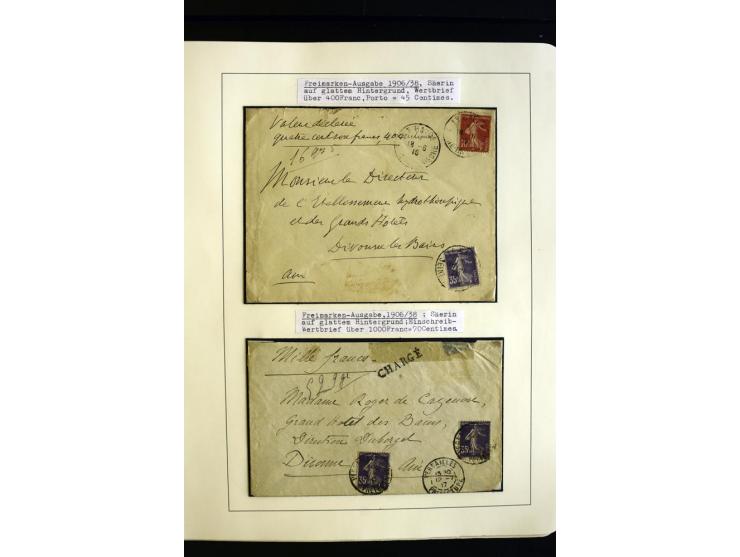 Freimarken-Ausgabe 1906/38, Säerin
auf glattem Hintergrund, Wertbrief
über 400Franc,Porto = 45 Centimes.
Valeur déclarée
quatre cents francs,
Monsieur le Directeur
de l'Etablissement hydrothérapique
et des Grands Hotels
Divonne les Bains
Ain
35
Freimarken-Ausgabe,1906/38 ; Säerin
auf glattem Hintergrund;Einschreib-
Wertbrief über 1000Franc=70Centimes
Mille francs
CHARGÉ
Madame Roger de
Grand Hotel des Bains,
Direction
Divonne Ain
35
35
VERSAILLES